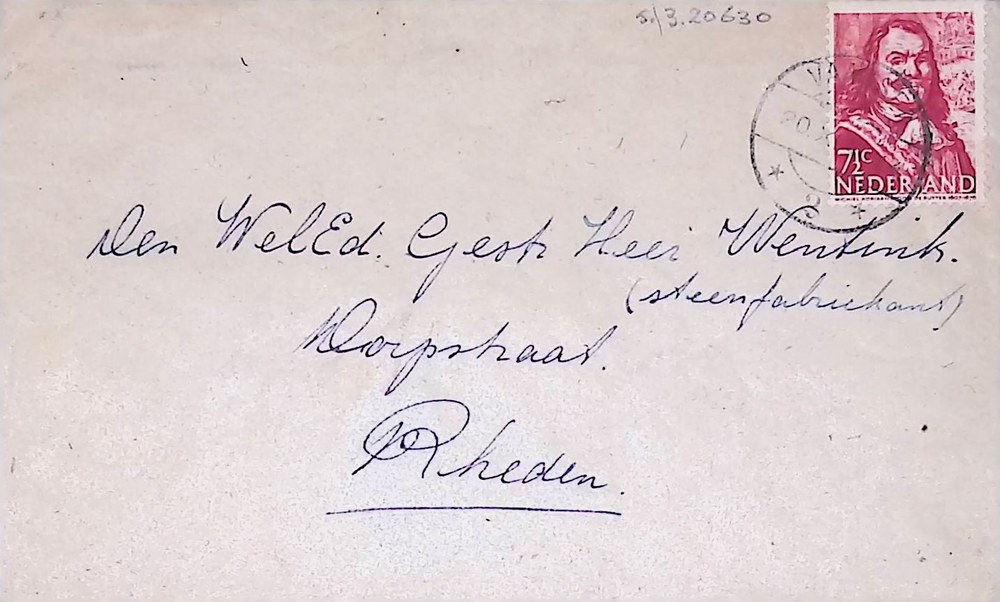 5./3.20630
7½c
NEDERLAND
Den WelEd. Gestr Heer Wentink.
(steenfabriekant)
Dorpstraat.
Rheden.